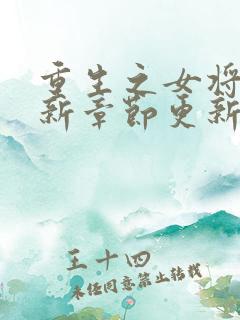 重生之女将
新章节更新
王十四
未经同意禁止转载